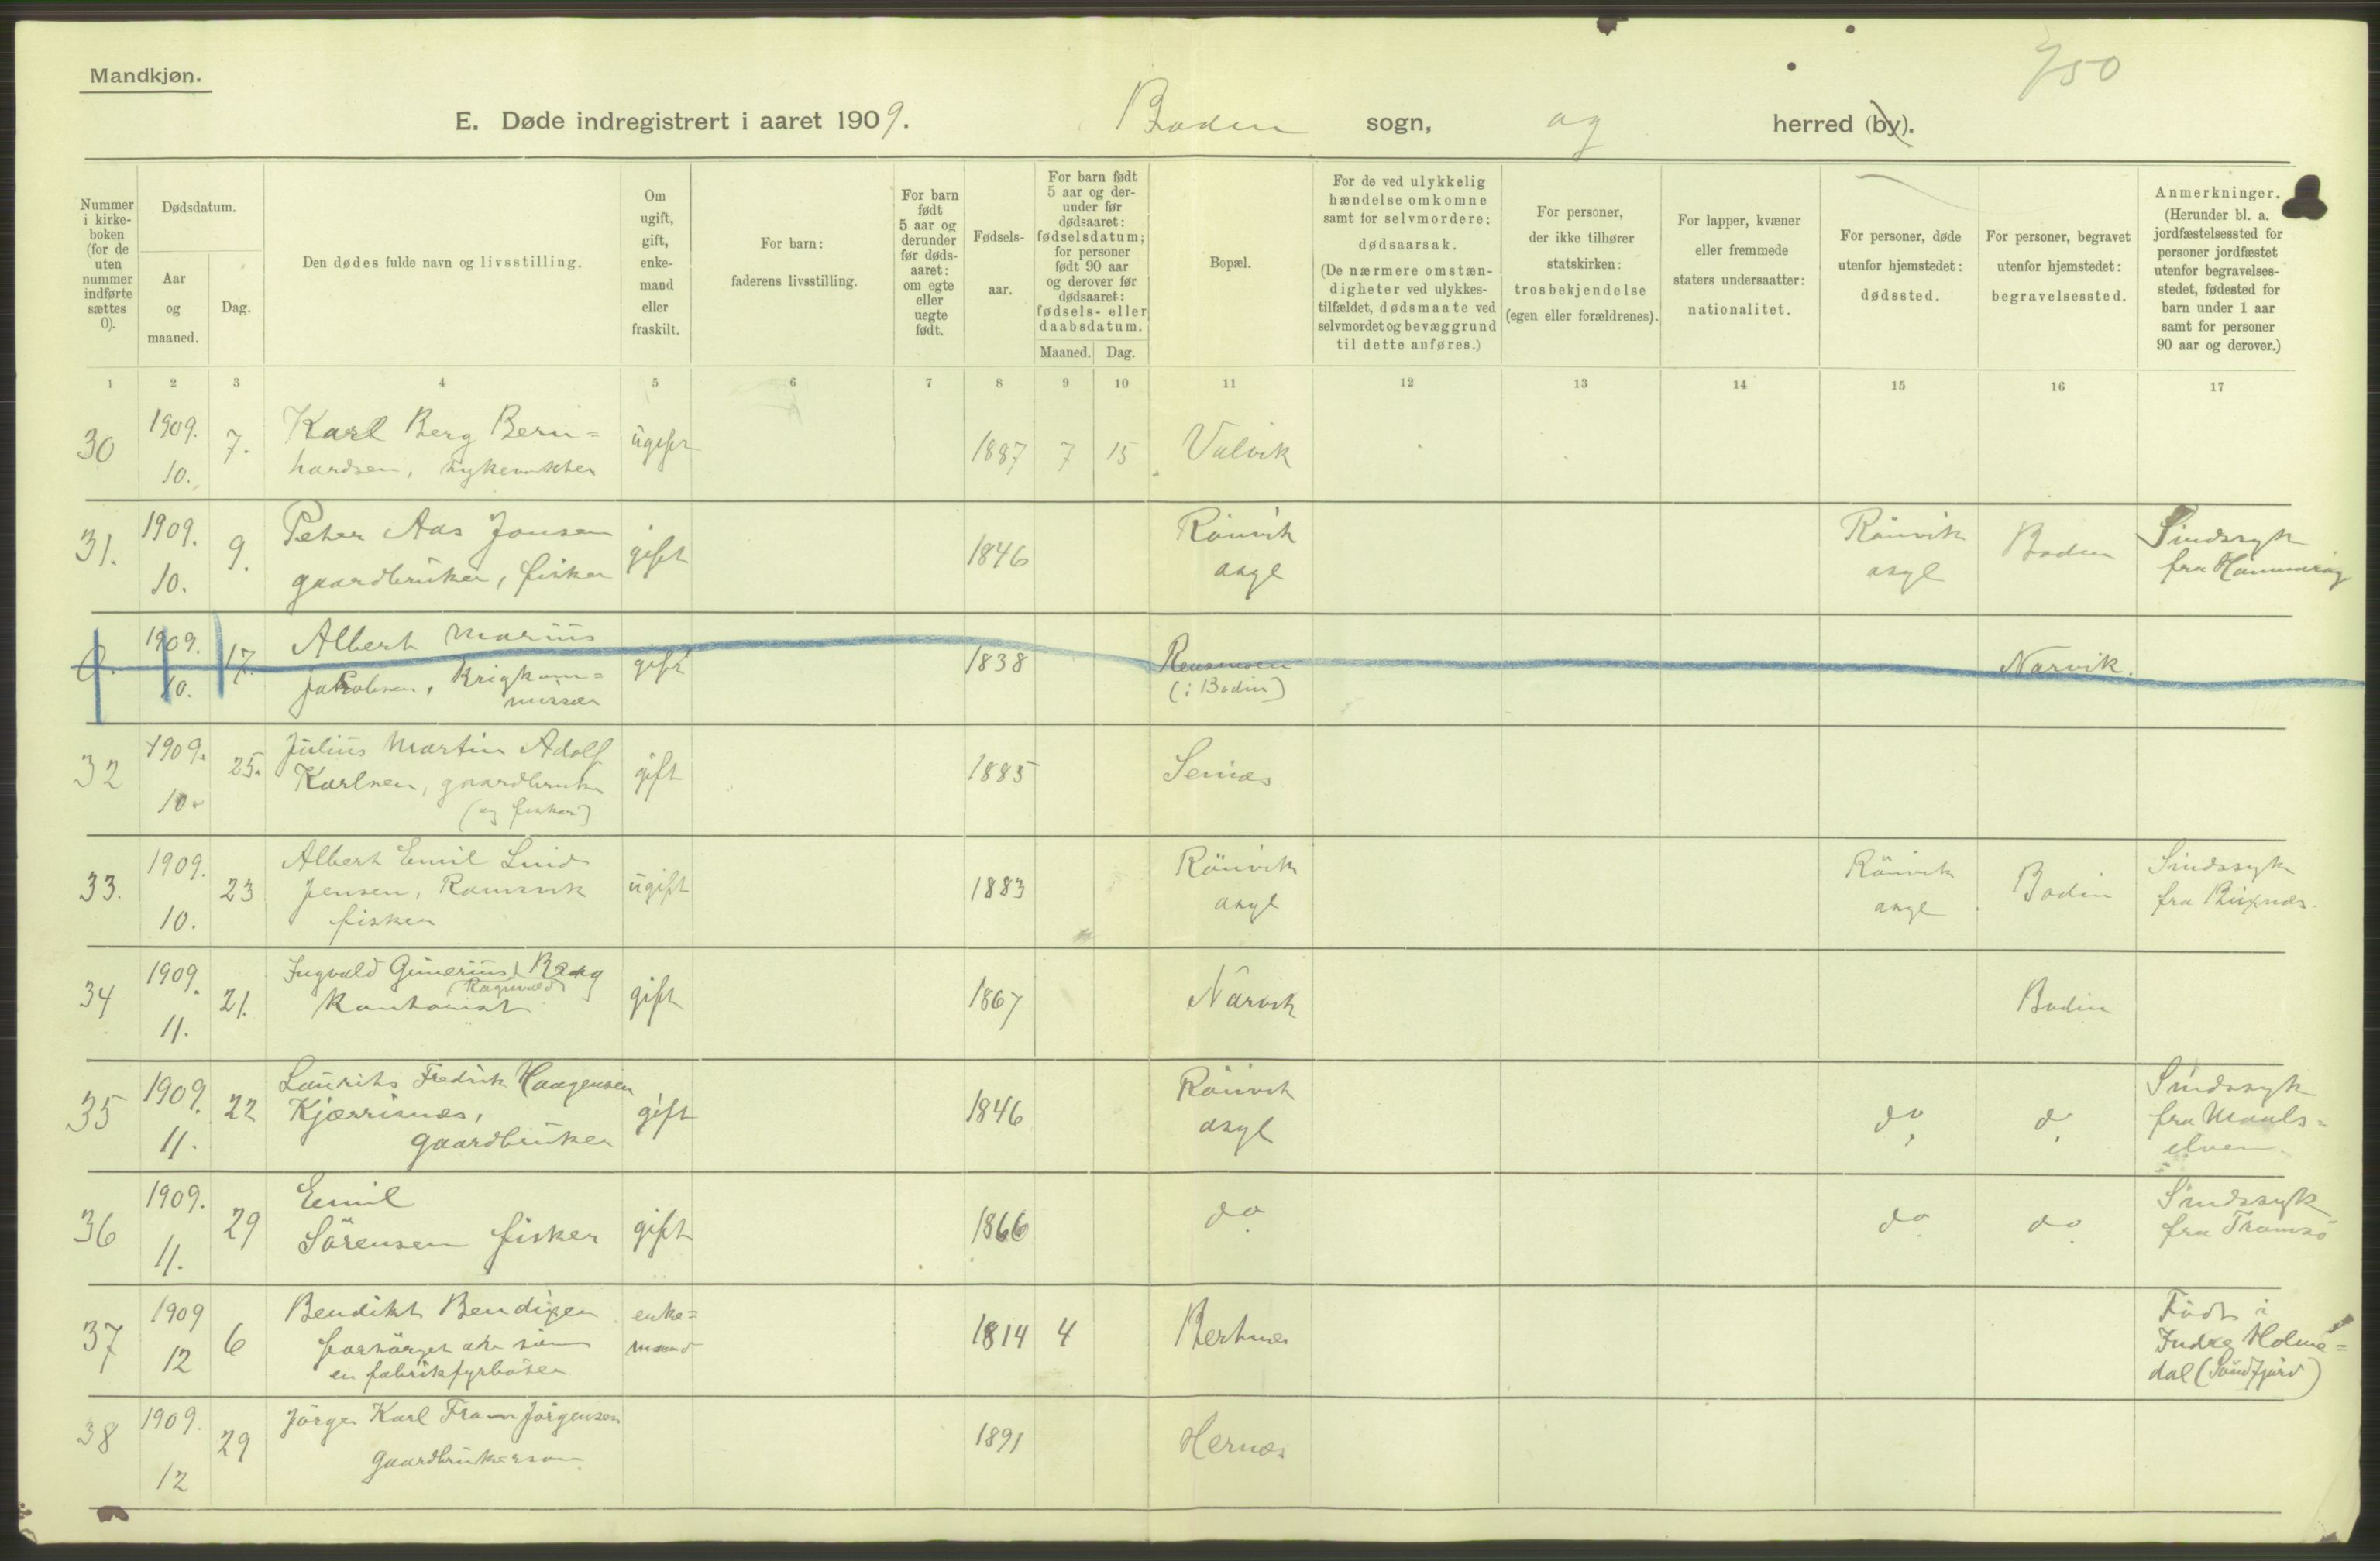 Mandkjøn.
750
E. Døde indregistrert i aaret 1909. Bodin sogn, og herred (by).
Nummer i kirke-boken (for de uten nummer indførte sættes 0).
Dødsdatum.
Aar og maaned.
Dag.
Den dødes fulde navn og livsstilling.
Om ugift, gift, enke-mand eller fraskilt.
For barn: faderens livsstilling.
For barn født 5 aar og derunder før døds-aaret: om egte eller uegte født.
Fødsels-aar.
For barn født 5 aar og der-under før dødsaaret: fødselsdatum; for personer født 90 aar og derover før dødsaaret: fødsels- eller daabsdatum.
Maaned. Dag.
Bopæl.
For de ved ulykkelig hændelse omkomne samt for selvmordere: dødsaarsak. (De nærmere omstæn-digheter ved ulykkes-tilfældet, dødsmaate ved selvmordet og bevæggrund til dette anføres.)
For personer, der ikke tilhører statskirken: trosbekjendelse (egen eller forældrenes).
For lapper, kvæner eller fremmede staters undersaatter: nationalitet.
For personer, døde utenfor hjemstedet: dødssted.
For personer, begravet utenfor hjemstedet: begravelsessted.
Anmerkninger. (Herunder bl. a. jordfæstelsessted for personer jordfæstet utenfor begravelses-stedet, fødested for barn under 1 aar samt for personer 90 aar og derover.)
1 2 3 4 5 6 7 8 9 10 11 12 13 14 15 16 17
30 1909. 10. 7. Karl Berg Bern=
hardsen, ugift 1887 7 15 Valvik
31. 1909. 10. 9. Peter Aas Jonsen
gaardbruker, fisker gift 1846 Rönvik asyl Rönvik asyl Bodin Sindssyk
fra Hammerøy
0. 1909. 10. 17. Albert Marius
Jakobsen, Krigkom=
missær gift 1838 (i Bodin) Narvik.
32 1909. 10. 25. Julius Martin Adolf
Karlsen, gaardbruker
(og fisker) gift 1885 Seines
33. 1909. 10. 23 Albert Emil Lind
Jensen, Ramsvik
fisker ugift 1883 Rönvik asyl Rönvik asyl Bodin Sindssyk
fra Buxnes.
34 1909. 11. 21. Ingvald Gunerius Berg
(Ragnvald)
Kontorist gift 1867 Narvik Bodin
35 1909. 11. 22 Laurits Fredrik Haagensen
Kjærrisnes,
gaardbruker gift 1846 Rönvik asyl do. do. Sindssyk
fra Maals=
elven
36 1909. 11. 29 Emil
Sörensen fisker gift 1866 do. do. do. Sindssyk
fra Tromsö
37 1909 12 6 Bendikt Bendixen
forsörget av sön
en fabrikfyrböter enke=
mand 1814 4 Bertnes Födt i
Indre Holme=
dal (Söndfjord)
38 1909. 12 29 Jörgen Karl Fram Jörgensen
gaardbrukersön 1891 Hernes